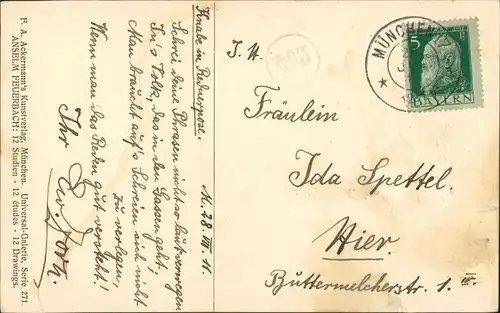 F. A. Ackermann's Kunstverlag, München. Universal-Galerie, Serie 271.
ANSELM FEUERBACH: 12 Studien - 12 études - 12 Drawings.
Knabe in Rednerpose.
M. 28. VII 11.
Schrei deine Phrasen nicht so laut verwegen
In's Volk, das in den Gassen geht,
Man braucht auf's Schreien sich nicht
zu verlegen,
Wenn man das Reden gut versteht!
Ihr
MÜNCHEN
5
BAYERN
Fräulein
Ida Spettel.
Hier.
Buttermelcherstr. 1. III.